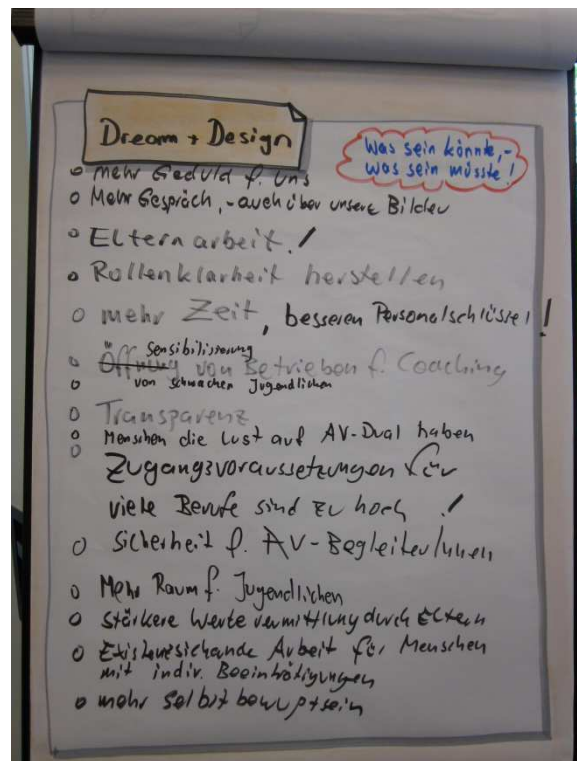 Dream + Design
Was sein könnte,-
was sein müsste!
o mehr Geduld f. uns
o Mehr Gespräch,-auch über unsere Bilder
o Elternarbeit!
o Rollenklarheit herstellen
o mehr Zeit, besseren Personalschlüssel!
Sensibilisierung
o Öffnung von Betrieben f. Coaching
o von schwachen Jugendlichen
o Transparenz
o Menschen die Lust auf AV-Dual haben
o Zugangsvoraussetzungen für
viele Berufe sind zu hoch!
o Sicherheit f. AV-Begleiter/innen
o Mehr Raum f. Jugendlichen
o stärkere Wertevermittlung durch Eltern
o Existenzsichernde Arbeit für Menschen
mit indiv. Beeinträtigungen
o mehr Selbstbewuptsein